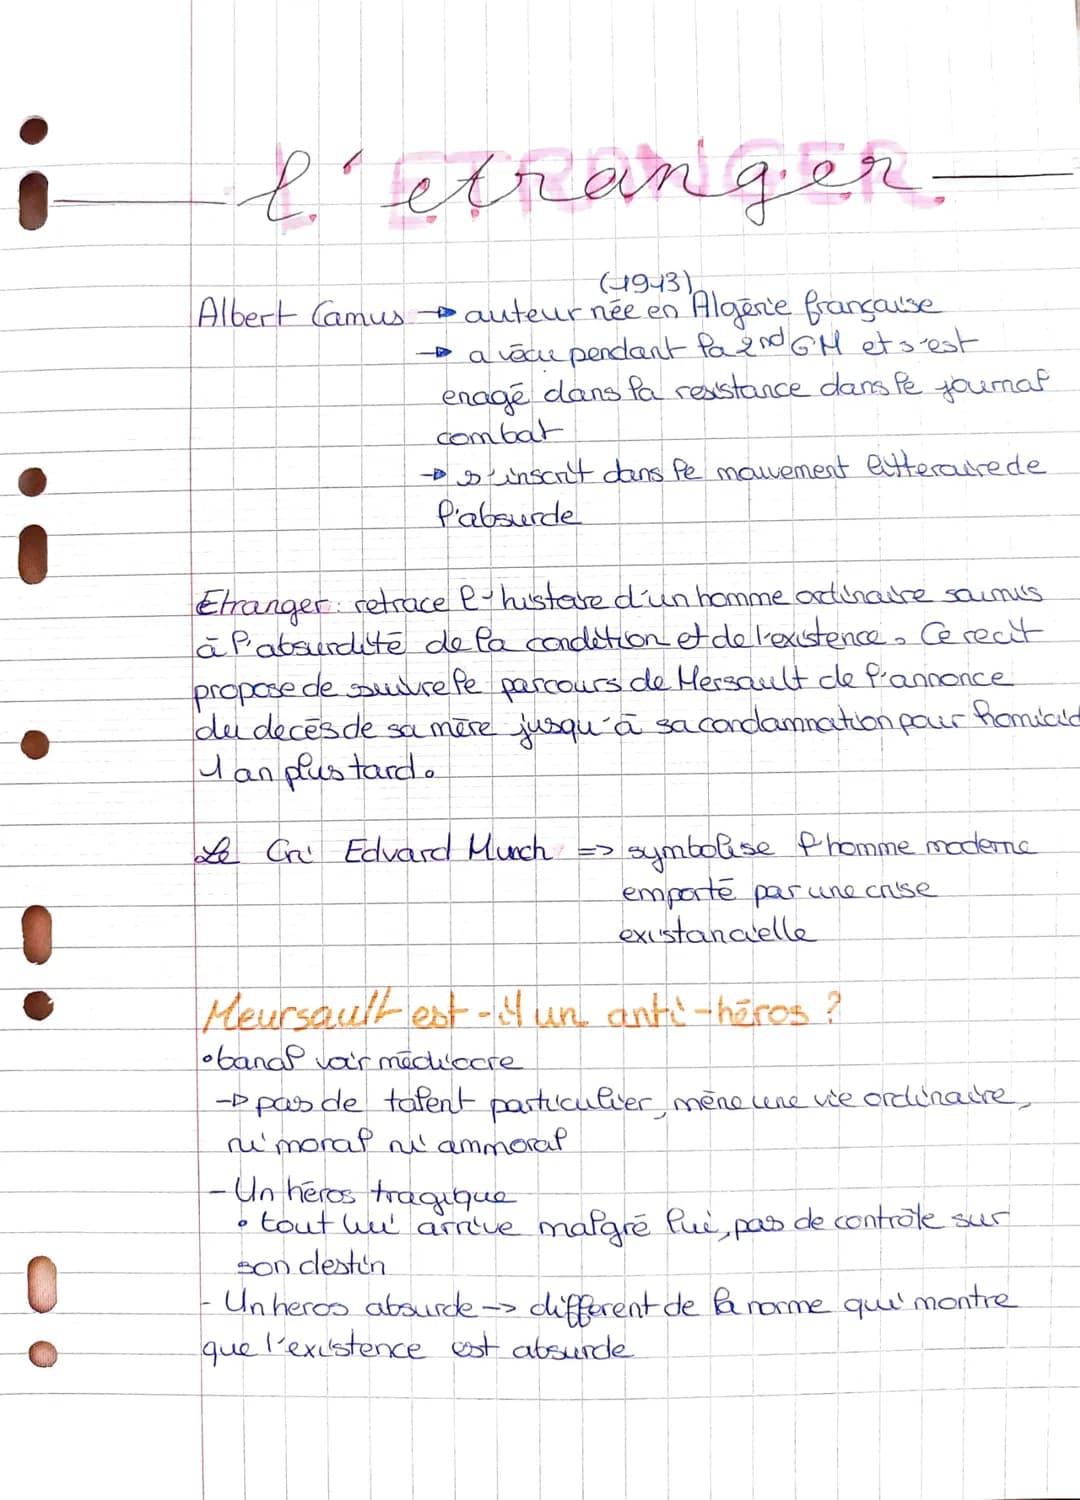 L'etranger
(1913)
Albert Camus → auteur née en Algérie française
→ a vécu pendant la 2nd GM et s'est
enagé dans la resistance dans le journal
combat
→ s'inscrit dans le mouvement litteraire de
l'absurde
Etranger : retrace l'histoire d'un homme ordinaire soumis
à l'absurdité de la condition et de l'existence. Ce recit
propose de suivre le parcours de Mersault de l'annonce
du decés de sa mère jusqu'à sa condamnation pour homicid
1 an plus tard.
Le Cri Edvard Munch => symbolise l'homme moderne
emporté par une crise
existancielle
Meursault est-il un anti-héros ?
• banal voir médiocre
→ pas de talent particulier, mène une vie ordinaire,
ni moral ni ammoral
- Un héros tragique
• tout lui arrive malgré lui, pas de contrôle sur
son destin
- Un heros absurde -> different de la norme qui montre
que l'existence est absurde